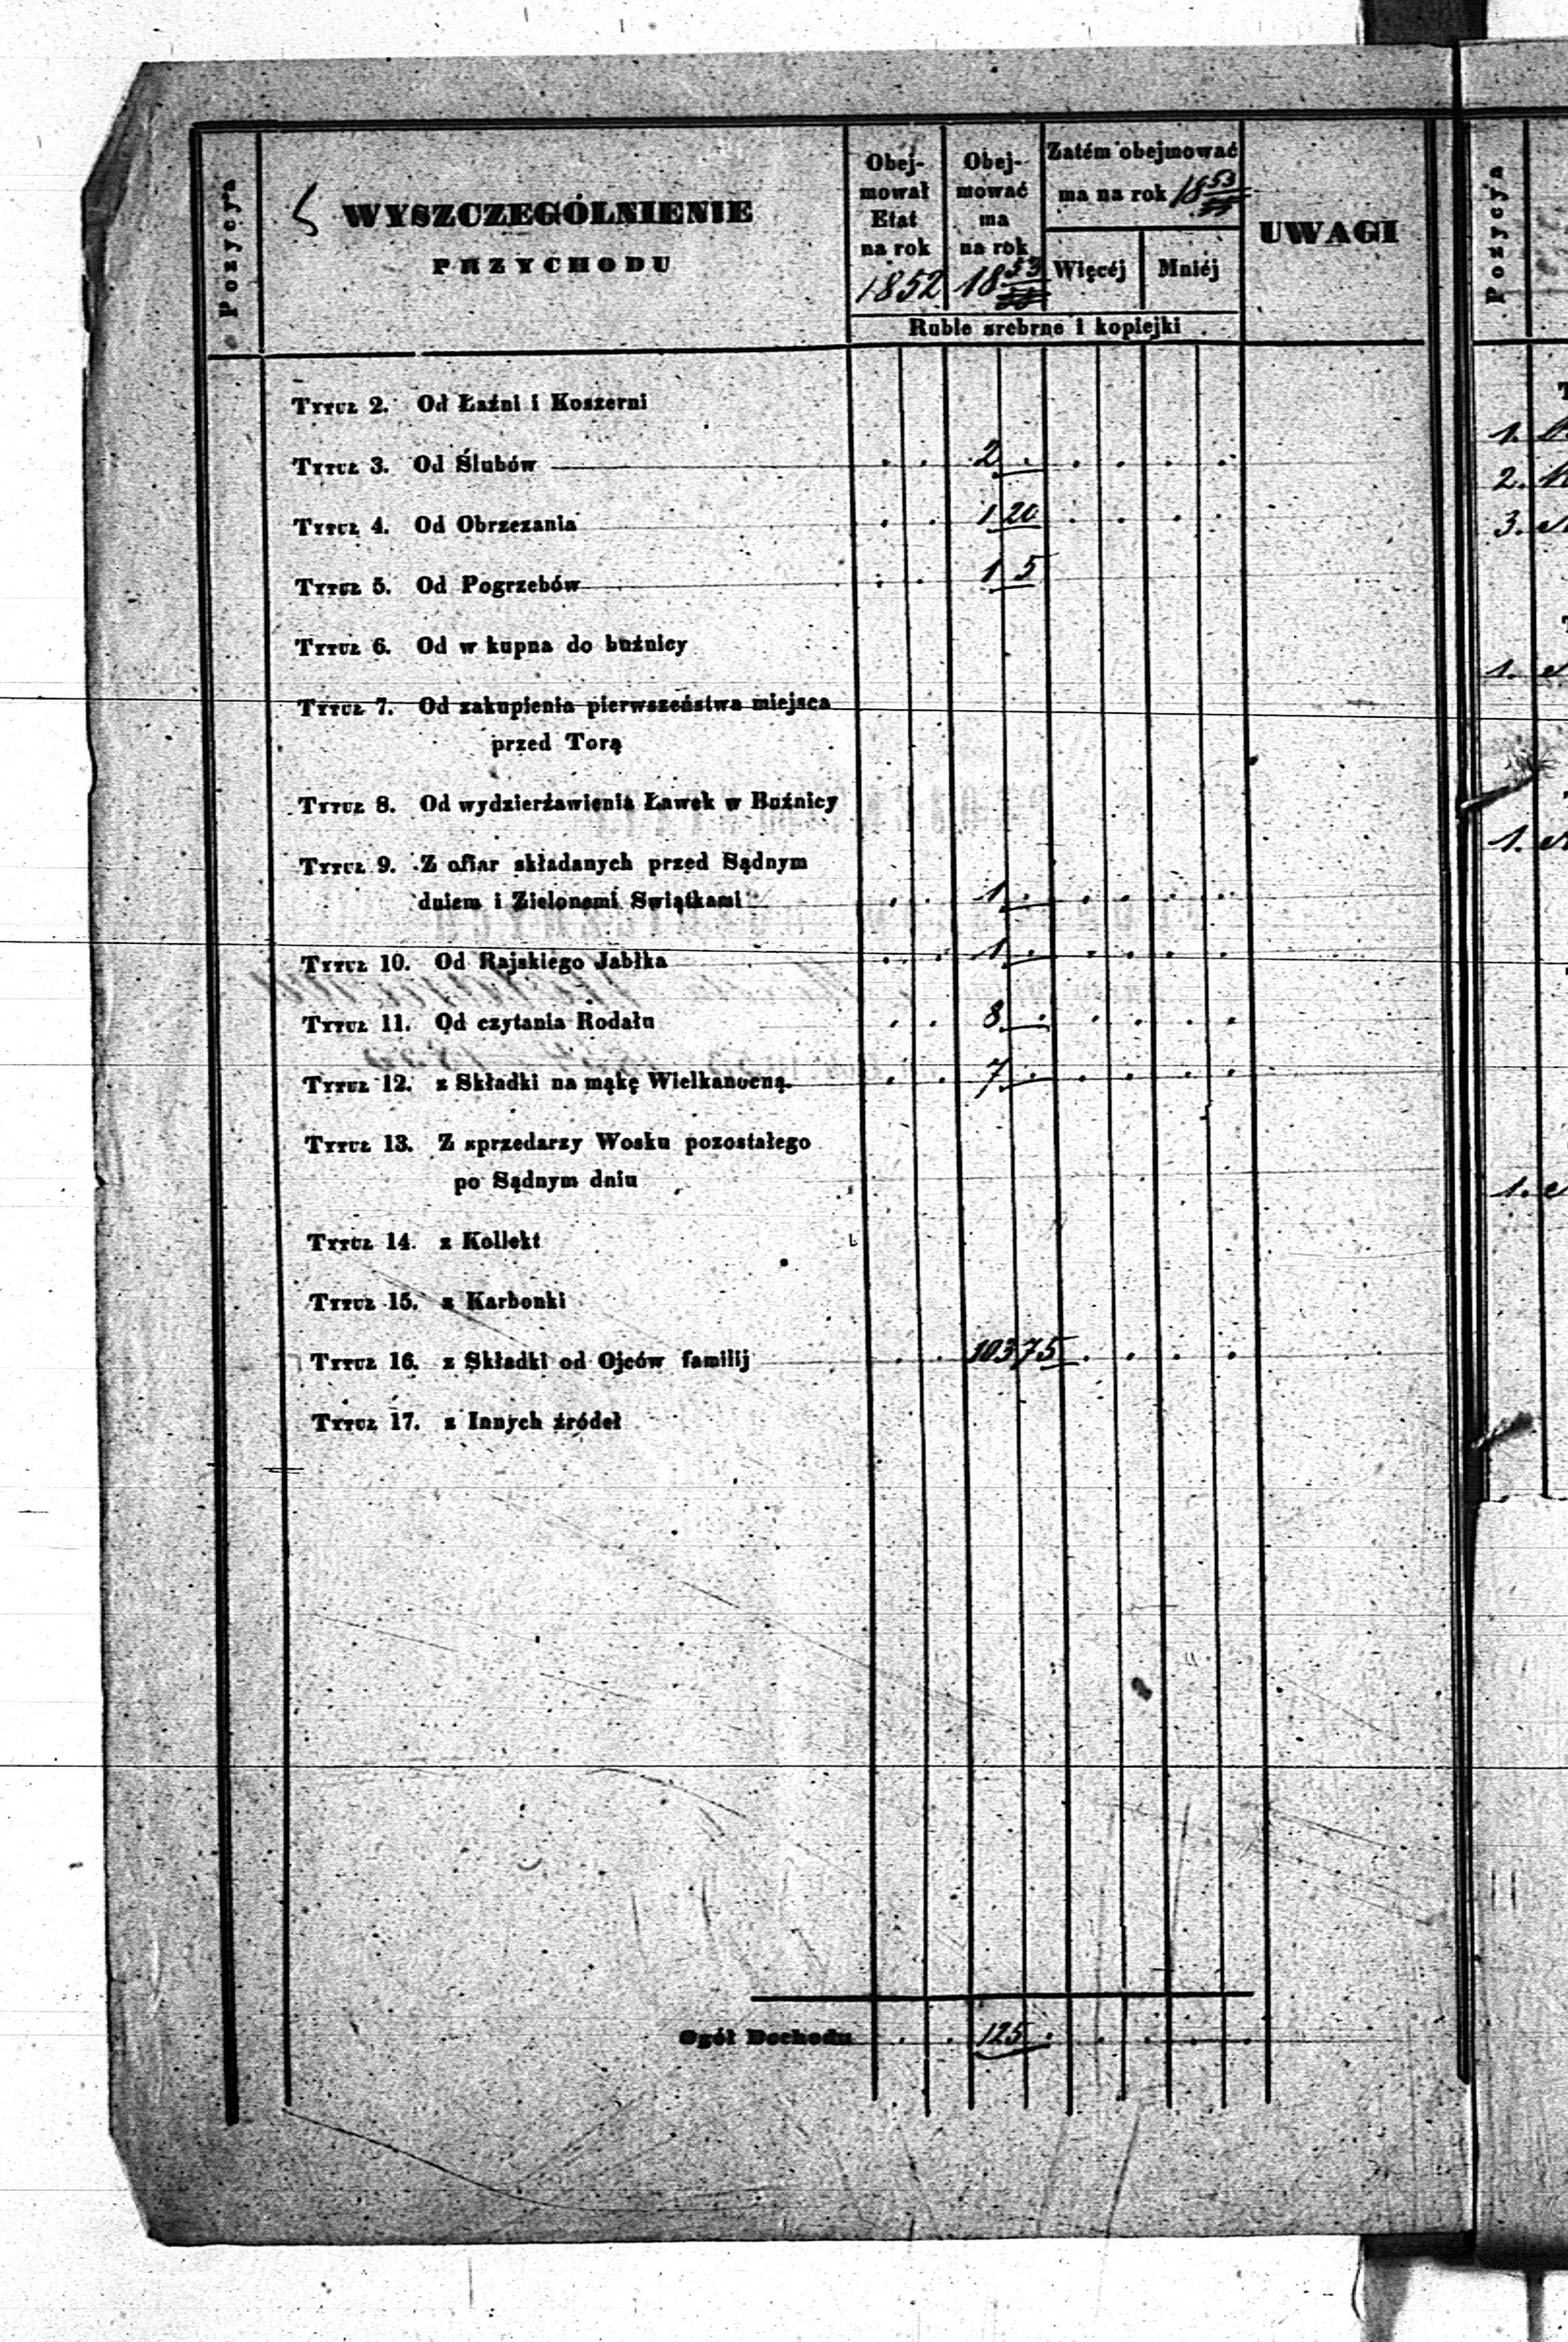 Pozycya
WYSZCZEGÓLNIENIE
PRZYCHODU
Obej-
mował
Etat
na rok
1852
Obej-
mować
ma
na rok
1853
Zatém obejmować
ma na rok 1853
Więcéj Mniéj
Ruble srebrne i kopiejki
UWAGI
Pozycya
Tytuł 2. Od Łaźni i Koszerni
Tytuł 3. Od Ślubów . . 2 . . . . .
Tytuł 4. Od Obrzezania . . 1 20 . . . .
Tytuł 5. Od Pogrzebów . . 1 5
Tytuł 6. Od w kupna do bużnicy
Tytuł 7. Od zakupienia pierwszeństwa miejsca
przed Torą
Tytuł 8. Od wydzierżawienia Ławek w Bużnicy
Tytuł 9. Z ofiar składanych przed Sądnym
dniem i Zielonemi Swiątkami . . 1 . . . . .
Tytuł 10. Od Rajskiego Jabłka . . 1 . . . . .
Tytuł 11. Od czytania Rodału . . 8 . . . . .
Tytuł 12. z Składki na mąkę Wielkanocną. . . 7 . . . . .
Tytuł 13. Z sprzedarzy Wosku pozostałego
po Sądnym dniu
Tytuł 14. z Kollekt
Tytuł 15. z Karbonki
Tytuł 16. z Składki od Ojców familij . . 103 75 . . . .
Tytuł 17. z Innych źródeł
Ogół Dochodu . . 125 . . . . .
1.
2.
3.
1.
1.
1.